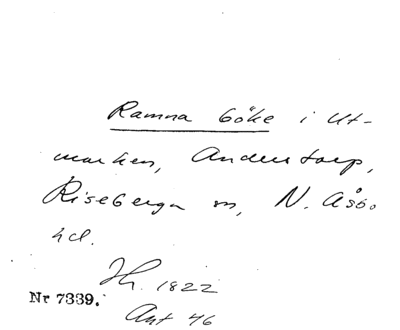 Ramna böke i Ut-
marken, Anderstorp,
Riseberga sn, N. Åsbo
hd.
Jh. 1822
Nr 7339.
Ant 46